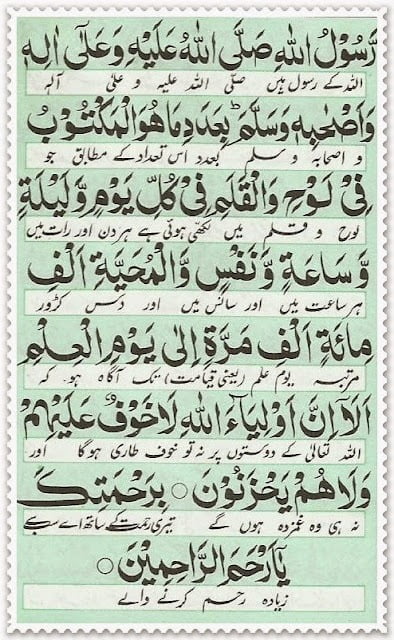 رَّسُوْلُ اللّٰهِ صَلَّى اللّٰهُ عَلَيْهِ وَعَلٰٓى اٰلِهٖ
اللہ کے رسول ہیں صلّی اللہ علیہ و علیٰ آلہٖ
وَاَصْحٰبِهٖ وَسَلَّمَ ؕ بِعَدَدِ مَا هُوَ الْمَكْتُوْبُ
و اصحابہ و سلم بعدد اس تعداد کے مطابق جو
فِىْ لَوْحِ وَالْقَلَمِ فِىْ كُلِّ يَوْمٍ وَّلَيْلَةٍ
لوح و قلم میں لکھی ہوئی ہے ہر دن اور رات میں
وَّ سَاعَةٍ وَّنَفْسٍ وَّالْمُحَيَّةِ اَلْفِ
ہر ساعت میں اور سانس میں اور دس کڑور
مِائَةِ اَلْفِ مَرَّةٍ اِلٰى يَوْمِ الْعِلْمِ
مرتبہ یوم علم (یعنی قیامت) تک آگاہ ہو کہ
اَلَاۤ اِنَّ اَوْلِيَآءَ اللّٰهِ لَاخَوْفٌ عَلَيْهِمْ
اللہ تعالیٰ کے دوستوں پر نہ تو خوف طاری ہوگا اور
وَلَا هُمْ يَحْزَنُوْنَ ○ بِرَحْمَتِكَ
نہ ہی وہ غمزدہ ہوں گے تیری رحمت کے ساتھ اے سب سے
يَآ اَرْحَمَ الرَّاحِمِيْنَ ○
زیادہ رحم کرنے والے